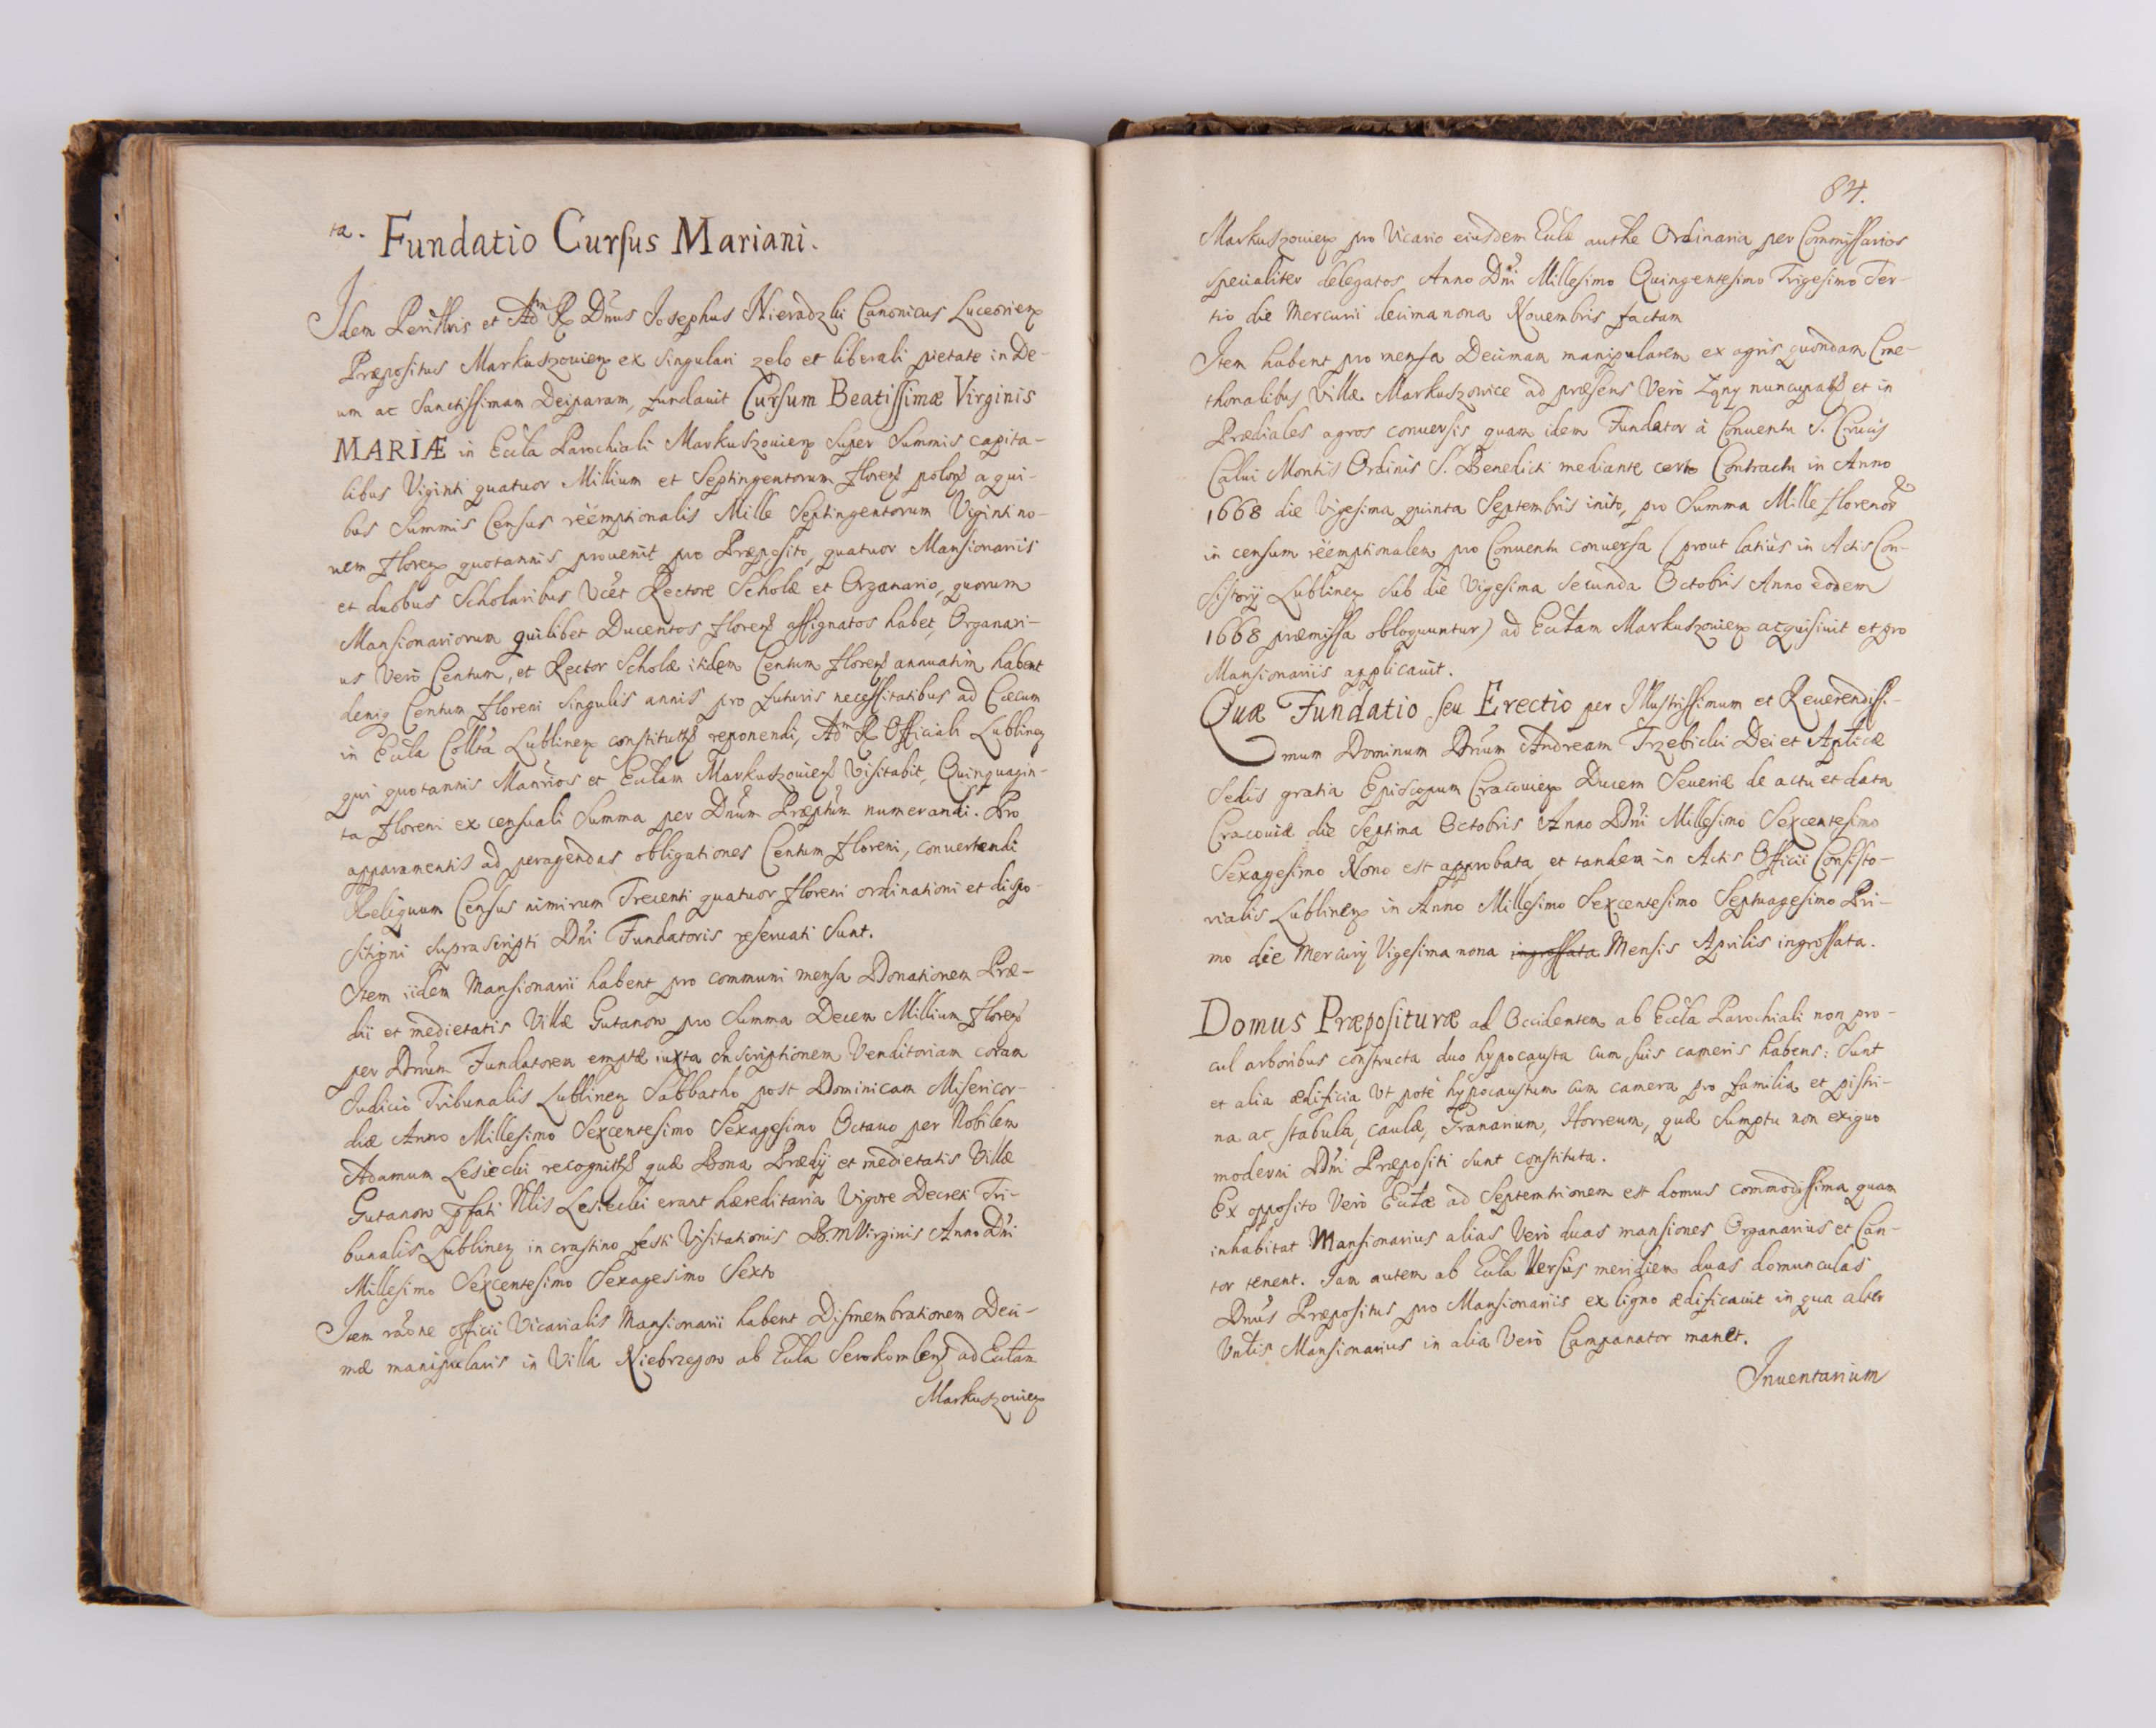 ta. Fundatio Cursus Mariani.
Idem Perillris et Adm R Dnus Josephus Nieradzki Canonicus Luceorien
Præpositus Markuszovien ex singulari zelo et liberali pietate in De-
um ac Sanctissimam Deiparam, fundavit Cursum Beatissimæ Virginis
MARIÆ in Eccla Parochiali Markuszovien super Summis capita-
libus Viginti quatuor Millium et Septingentorum floren polon a qui-
bus Summis Census reëmptionalis Mille Septingentorum Viginti no-
vem floren quotannis provenit pro Præposito, quatuor Mansionariis
et duobus Scholaribus Vcet Rectore Scholæ et Organario, quorum
Mansionariorum quilibet Ducentos floren assignatos habet, Organari-
us Verò Centum, et Rector Scholæ itidem Centum floren annuatim habent
deniq Centum floreni singulis annis pro futuris necessitatibus ad Cæcum
in Eccla Collta Lublinen constitutt reponendi, Adm R Officiali Lublinen
qui quotannis Manrios et Ecclam Markuszovien Visitabit, Quinquagin-
ta floreni ex censuali Summa per Dnum Præptum numerandi. Pro
apparamentis ad peragendas obligationes Centum floreni, convertendi
Reliquum Census nimirum Trecenti quatuor floreni ordinationi et dispo-
sitioni suprascripti Dni Fundatoris reservati sunt.
Item iidem Mansionarii habent pro communi mensa Donationem Præ-
dii et medietatis Villæ Gutanow pro Summa Decem Millium floren
per Dnum Fundatorem emptæ iuxta Inscriptionem Venditoriam coram
Iudicio Tribunalis Lublinen Sabbatho post Dominicam Misericor-
diæ Anno Millesimo Sexcentesimo Sexagesimo Octavo per Nobilem
Adamum Lesiecki recognitt quæ Bona Prædij et medietatis Villæ
Gutanow pfati Nlis Lesiecki erant hæreditaria Vigore Decreti Tri-
bunalis Lublinen in crastino festi Visitationis B.M Virginis Anno Dni
Millesimo Sexcentesimo Sexagesimo Sexto
Item raone officii Vicarialis Mansionarii habent Dismembrationem Deci-
mæ manipularis in Villa Niebrzegow ab Eccla Serokomlen ad Ecclam
Markuszovien
84.
Markuszovien pro Vicario eiusdem Eccle authe Ordinaria per Commissarios
specialiter delegatos Anno Dni Millesimo Quingentesimo Trigesimo Ter-
tio die Mercurii decima nona Novembris factam
Item habent pro mensa Decimam manipularem ex agris quondam Cme-
thonalibus Villæ Markuszowice ad præsens Verò Łąny nuncupatt et in
Prædiales agros conversis quam idem Fundator à Conventu S. Crucis
Calvi Montis Ordinis S. Benedicti mediante certo Contractu in Anno
1668 die Vigesima quinta Septembris inito, pro Summa Mille florenor
in censum reëmptionalem pro Conventu conversa (prout latiùs in Actis Con-
sistorij Lublinen sub die Vigesima secunda Octobris Anno eodem
1668 præmissa obloquuntur) ad Ecclam Markuszovien acquisivit et pro
Mansionariis applicavit.
Quæ Fundatio seu Erectio per Illustrissimum et Reverendissi-
mum Dominum Dnum Andream Trzebicki Dei et Aplicæ
Sedis gratia Episcopum Cracovien Ducem Severiæ de actu et data
Cracoviæ die Septima Octobris Anno Dni Millesimo Sexcentesimo
Sexagesimo Nono est approbata et tandem in Actis Officii Consisto-
rialis Lublinen in Anno Millesimo Sexcentesimo Septuagesimo Pri-
mo die Mercurij Vigesima nona ingrossata Mensis Aprilis ingrossata.
Domus Præposituræ ad Occidentem ab Eccla Parochiali non pro-
cul arboribus constructa duo hypocausta cum suis cameris habens: Sunt
et alia ædificia Vt potè hypocaustum cum camera pro familia et pistri-
na ac stabula, caulæ, Granarium, Horreum, quæ sumptu non exiguo
moderni Dni Præpositi sunt constituta.
Ex opposito Verò Ecclæ ad Septemtrionem est domus commodissima quam
inhabitat Mansionarius alias Verò duas mansiones Organarius et Can-
tor tenent. Iam autem ab Eccla Versùs meridiem duas domunculas
Dnus Præpositus pro Mansionariis ex ligno ædificavit in qua alter
Vntis Mansionarius in alia Verò Campanator manet.
Inventarium